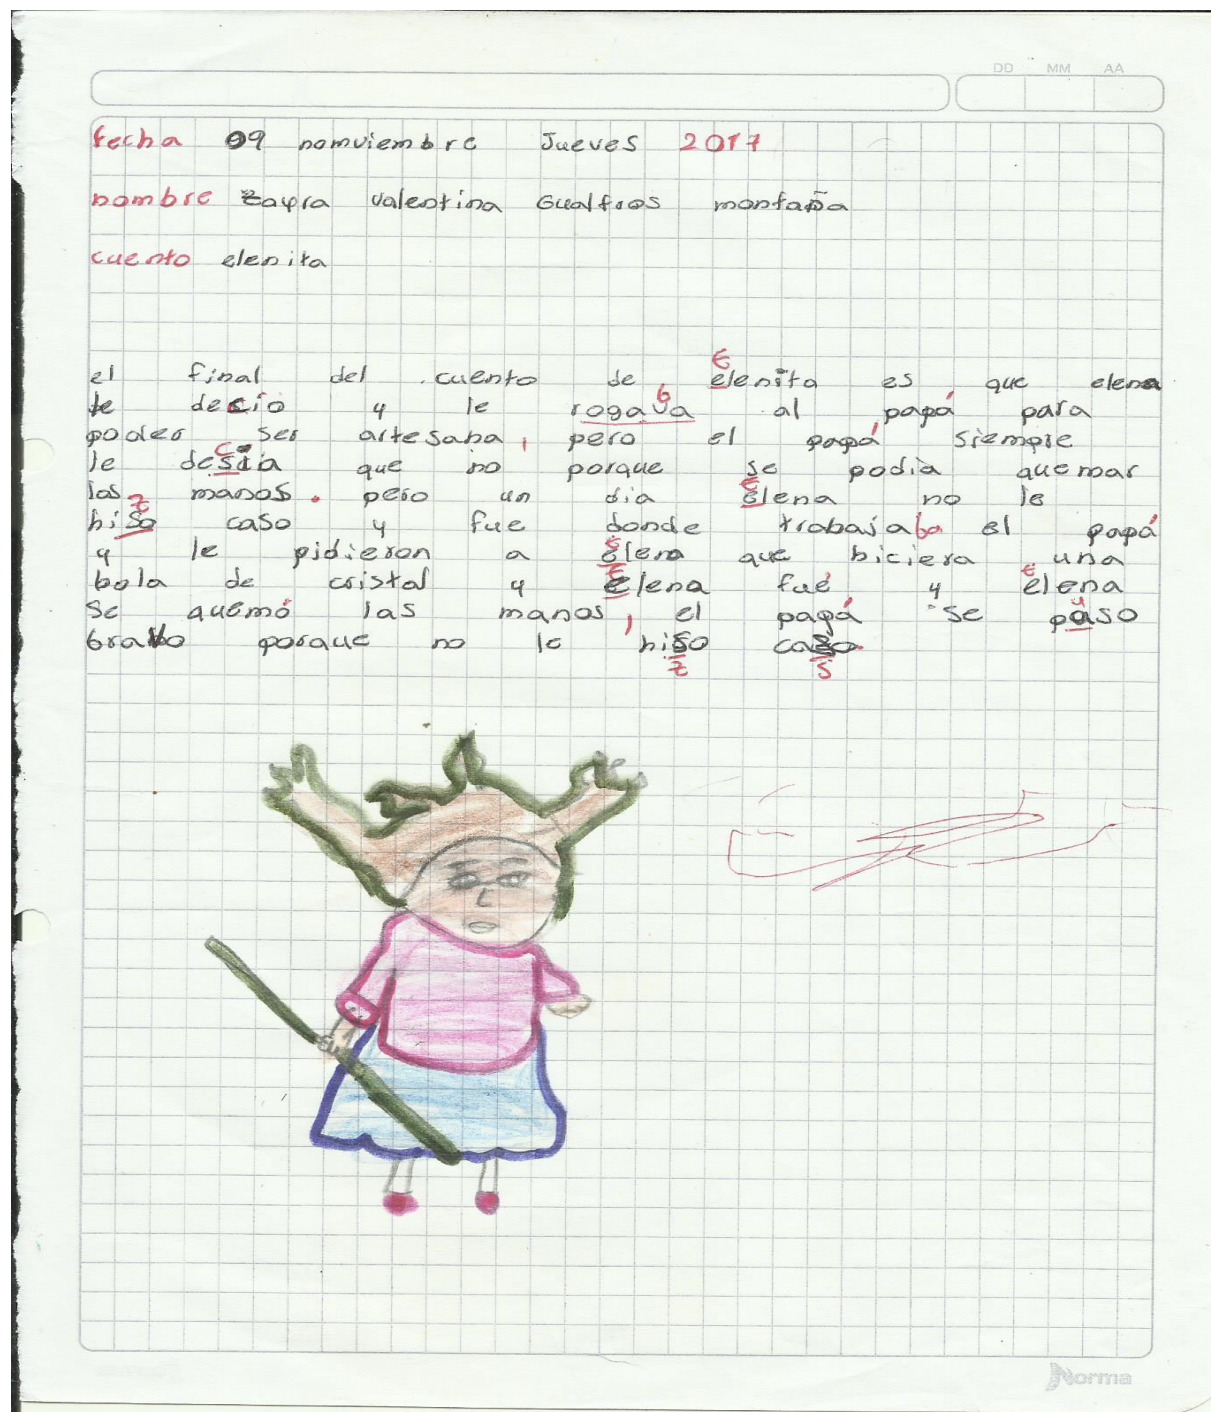 DD MM AA
fecha 09 nomviembre Jueves 2017
nombre Zayra Valentina Gualtros montaña
cuento elenita
el final del cuento de elenita es que elena
le decio y le rogava al papá para
poder ser artesana, pero el papá siempre
le desia que no porque se podia quemar
las manos. pero un dia Elena no le
hiso caso y fue donde trabajaba el papá
y le pidieron a Elena que hiciera una
bola de cristal y Elena fué y Elena
se quemó las manos, el papá se paso
bravo porque no le hiso caso.
Norma